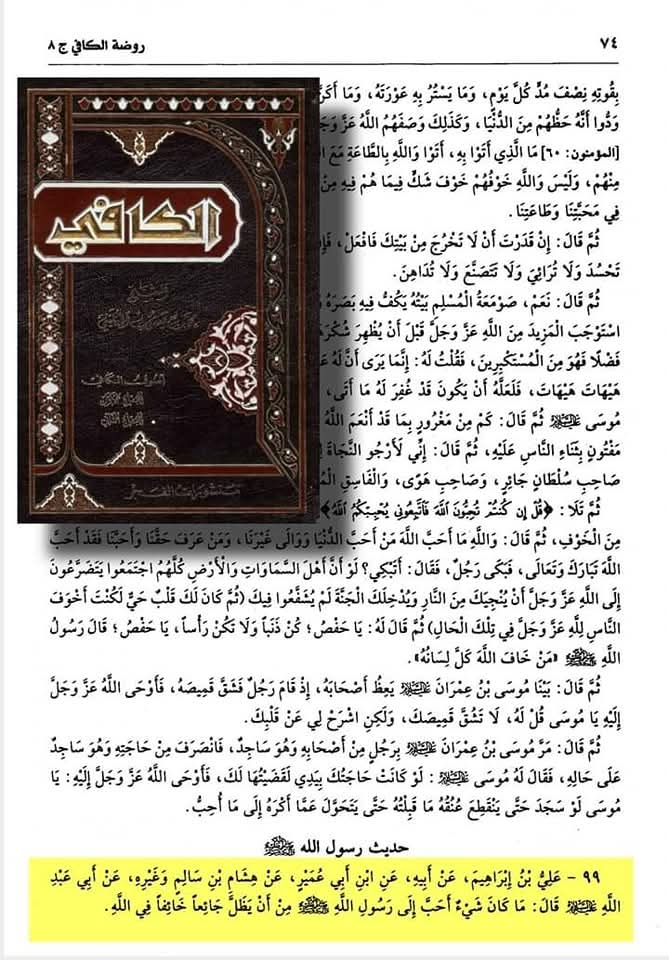 ٧٤
روضة الكافي ج ٨
بِقُوتِهِ نِصْفَ مُدٍّ كُلَّ يَوْمٍ، وَمَا يَسْتُرُ بِهِ عَوْرَتَهُ، وَمَا أَكَنَّ
وَدُّوا أَنَّهُ حَظُّهُمْ مِنَ الدُّنْيَا، وَكَذَلِكَ وَصَفَهُمُ اللَّهُ عَزَّ وَجَ
[المؤمنون: ٦٠] مَا الَّذِي أَتَوْا بِهِ، أَتَوْا وَاللَّهِ بِالطَّاعَةِ مَعَ
مِنْهُمْ، وَلَيْسَ وَاللَّهِ خَوْفُهُمْ خَوْفَ شَكٍّ فِيمَا هُمْ فِيهِ مِنْ
فِي مَحَبَّتِنَا وَطَاعَتِنَا.
ثُمَّ قَالَ: إِنْ قَدَرْتَ أَنْ لَا تَخْرُجَ مِنْ بَيْتِكَ فَافْعَلْ، فَإِ
تَحْسُدَ وَلَا تُرَائِيَ وَلَا تَتَصَنَّعَ وَلَا تُدَاهِنَ.
ثُمَّ قَالَ: نَعَمْ، صَوْمَعَةُ الْمُسْلِمِ بَيْتُهُ يَكُفُّ فِيهِ بَصَرَهُ وَ
اسْتَوْجَبَ الْمَزِيدَ مِنَ اللَّهِ عَزَّ وَجَلَّ قَبْلَ أَنْ يُظْهِرَ شُكْرَهَ
فَضْلًا فَهُوَ مِنَ الْمُسْتَكْبِرِينَ، فَقُلْتُ لَهُ: إِنَّمَا يَرَى أَنَّ لَهُ عَ
هَيْهَاتَ هَيْهَاتَ، فَلَعَلَّهُ أَنْ يَكُونَ قَدْ غُفِرَ لَهُ مَا أَتَى،
مُوسَى عَلَيْهِ السَّلَام ثُمَّ قَالَ: كَمْ مِنْ مَغْرُورٍ بِمَا قَدْ أَنْعَمَ اللَّهُ
مَفْتُونٍ بِثَنَاءِ النَّاسِ عَلَيْهِ، ثُمَّ قَالَ: إِنِّي لَأَرْجُو النَّجَاةَ لِ
صَاحِبِ سُلْطَانٍ جَائِرٍ، وَصَاحِبِ هَوًى، وَالْفَاسِقِ الْمُ
ثُمَّ تَلَا: ﴿قُلْ إِن كُنتُمْ تُحِبُّونَ اللَّهَ فَاتَّبِعُونِي يُحْبِبْكُمُ اللَّهُ﴾
مِنَ الْخَوْفِ، ثُمَّ قَالَ: وَاللَّهِ مَا أَحَبَّ اللَّهَ مَنْ أَحَبَّ الدُّنْيَا وَوَالَى غَيْرَنَا، وَمَنْ عَرَفَ حَقَّنَا وَأَحَبَّنَا فَقَدْ أَحَبَّ
اللَّهَ تَبَارَكَ وَتَعَالَى، فَبَكَى رَجُلٌ، فَقَالَ: أَتَبْكِي؟ لَوْ أَنَّ أَهْلَ السَّمَاوَاتِ وَالْأَرْضِ كُلَّهُمُ اجْتَمَعُوا يَتَضَرَّعُونَ
إِلَى اللَّهِ عَزَّ وَجَلَّ أَنْ يُنْجِيَكَ مِنَ النَّارِ وَيُدْخِلَكَ الْجَنَّةَ لَمْ يُشَفَّعُوا فِيكَ (ثُمَّ كَانَ لَكَ قَلْبٌ حَيٌّ لَكُنْتَ أَخْوَفَ
النَّاسِ لِلَّهِ عَزَّ وَجَلَّ فِي تِلْكَ الْحَالِ) ثُمَّ قَالَ لَهُ: يَا حَفْصُ؛ كُنْ ذَنَبًا وَلَا تَكُنْ رَأْسًا، يَا حَفْصُ؛ قَالَ رَسُولُ
اللَّهِ ﷺ «مَنْ خَافَ اللَّهَ كَلَّ لِسَانُهُ».
ثُمَّ قَالَ: بَيْنَا مُوسَى بْنُ عِمْرَانَ عَلَيْهِ السَّلَام يَعِظُ أَصْحَابَهُ، إِذْ قَامَ رَجُلٌ فَشَقَّ قَمِيصَهُ، فَأَوْحَى اللَّهُ عَزَّ وَجَلَّ
إِلَيْهِ يَا مُوسَى قُلْ لَهُ، لَا تَشُقَّ قَمِيصَكَ، وَلَكِنِ اشْرَحْ لِي عَنْ قَلْبِكَ.
ثُمَّ قَالَ: مَرَّ مُوسَى بْنُ عِمْرَانَ عَلَيْهِ السَّلَام بِرَجُلٍ مِنْ أَصْحَابِهِ وَهُوَ سَاجِدٌ، فَانْصَرَفَ مِنْ حَاجَتِهِ وَهُوَ سَاجِدٌ
عَلَى حَالِهِ، فَقَالَ لَهُ مُوسَى عَلَيْهِ السَّلَام: لَوْ كَانَتْ حَاجَتُكَ بِيَدِي لَقَضَيْتُهَا لَكَ، فَأَوْحَى اللَّهُ عَزَّ وَجَلَّ إِلَيْهِ: يَا
مُوسَى لَوْ سَجَدَ حَتَّى يَنْقَطِعَ عُنُقُهُ مَا قَبِلْتُهُ حَتَّى يَتَحَوَّلَ عَمَّا أَكْرَهُ إِلَى مَا أُحِبُّ.
حديث رسول الله ﷺ
٩٩ - عَلِيُّ بْنُ إِبْرَاهِيمَ، عَنْ أَبِيهِ، عَنِ ابْنِ أَبِي عُمَيْرٍ، عَنْ هِشَامِ بْنِ سَالِمٍ وَغَيْرِهِ، عَنْ أَبِي عَبْدِ
اللَّهِ عَلَيْهِ السَّلَام قَالَ: مَا كَانَ شَيْءٌ أَحَبَّ إِلَى رَسُولِ اللَّهِ ﷺ مِنْ أَنْ يَظَلَّ جَائِعًا خَائِفًا فِي اللَّهِ.
الكافي
أصول الكافي
منشورات الفجر